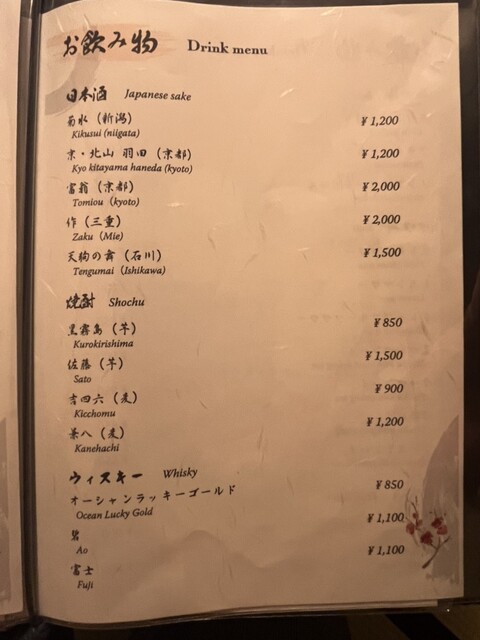 お飲み物 Drink menu
日本酒 Japanese sake
菊水（新潟） ¥1,200
Kikusui (niigata)
京・北山 羽田（京都） ¥1,200
Kyo kitayama haneda (kyoto)
富翁（京都） ¥2,000
Tomiou (kyoto)
作（三重） ¥2,000
Zaku (Mie)
天狗の舞（石川） ¥1,500
Tengumai (Ishikawa)
焼酎 Shochu
黒霧島（芋） ¥850
Kurokirishima
佐藤（芋） ¥1,500
Sato
吉四六（麦） ¥900
Kicchomu
兼八（麦） ¥1,200
Kanehachi
ウィスキー Whisky
オーシャンラッキーゴールド ¥850
Ocean Lucky Gold
碧 ¥1,100
Ao
富士 ¥1,100
Fuji